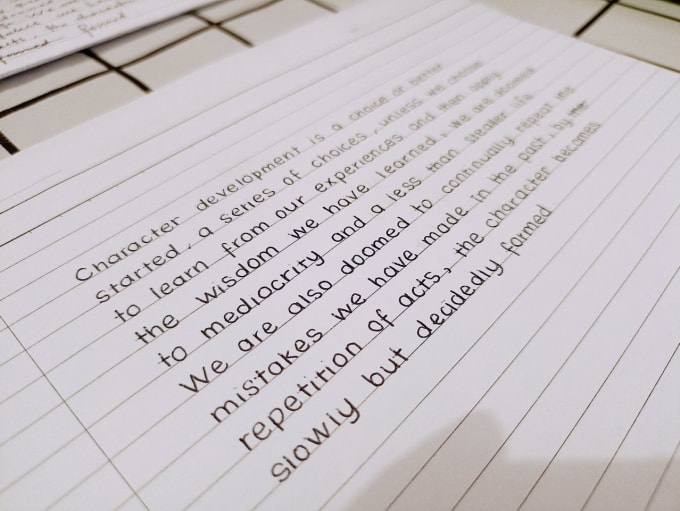 Character development is a choice or better
started, a series of choices, unless we choose
to learn from our experiences and then apply
the wisdom we have learned, we are doomed
to mediocrity and a less than stellar life.
We are also doomed to continually repeat the
mistakes we have made in the past, by the
repetition of acts, the character becomes
slowly but decidedly formed